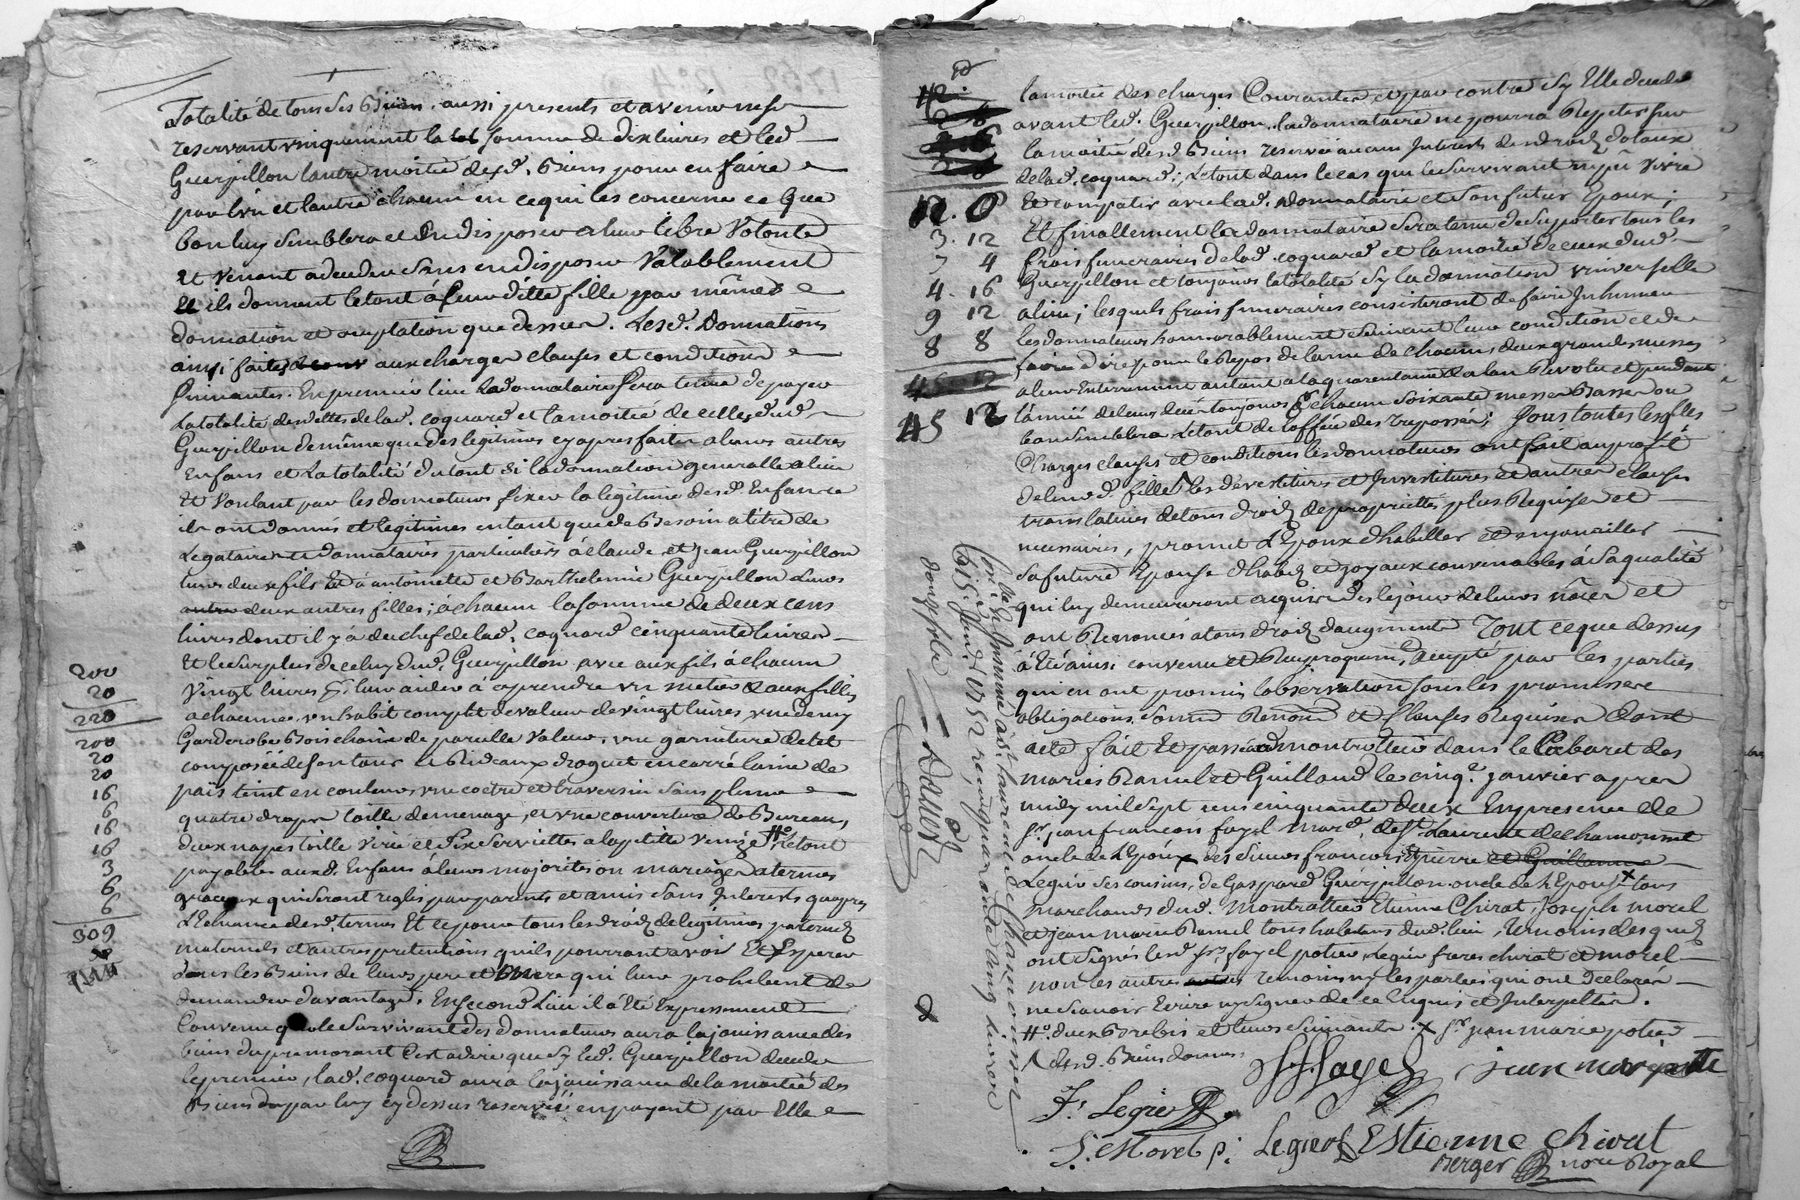 Totalité de tous ses Biens aussi presents et avenir ne se
reservant uniquement la somme de dix livres et led.
Guerpillon l'autre moitié desd. Biens pour en faire
par l'un et l'autre chacun en ce qui les concerne ce que
bon luy semblera et En disposer a leur libre Volonté
Et Venant a deceder sans en disposer Valablement
ils donnent le tout à leur ditte fille par même
donnation et acceptation que dessus. Lesd. Donnations
ainsi faites aux charges clauses et conditions
suivantes. En premier lieu La donnataire sera tenue de payer
la totalité des dettes de lad. coquard et la moitié de celles dud.
Guerpillon de même que des legitimes cy apres faites a leurs autres
Enfans et La totalité du tout si la donnation generalle a lieu
Et Voulant par les donnateurs fixer la legitime desd. Enfans
ils ont donnés et legitimés en tant que de Besoin a titre de
Legataires et donnataires particuliers à claude et jean Guerpillon
leurs deux fils Et à antoinette et Barthelemie Guerpillon Leurs
deux autres filles; à chacun la somme de deux cens
livres dont il y a du chef de lad. coquard cinquante livres
Et le surplus de celuy dud. Guerpillon avec aux fils à chacun
Vingt livres pr. leur aider à apprendre un metier & aux filles
a chacune un habit complet de valeur de vingt livres, une
Garderobe Bois de pareille Valeur, une garniture de lit
composée de son tour et Rideaux droguet laine de
païs teint en couleurs une et traversin sans plume
quatre draps toille de menage, et une couverture de Bureau,
deux napes toille et six serviettes a la petite Venize # Le tout
payables auxd. Enfans à leurs majorités ou mariages a termes
qui seront reglés par parents et amis sans Interests qu'apres
L'Echeance desd. termes Et ce pour tous les droits de legitimes paternels
maternels et autres pretentions qu'ils pourront avoir Et Esperer
dans les Biens de leurs pere et Mere qui leur prohibent de
demander davantage. En second Lieu il a Eté Expressement
Convenu que le Survivant des donnateurs aura la jouissance des
biens du premourant C'est a dire que sy led. Guerpillon decede
le premier, lad. coquard aura la jouissance de la moitié des
Biens par luy cy dessus reservée en payant par Elle
200
20
220
200
20
20
16
6
16
16
3
6
6
309
la moitié des charges Courantes et par contre sy Elle decede
avant led. Guerpillon, la donnataire ne pourra Repeter sur
la moitié desd. Biens reservée aucun Interests des droits dotaux
de lad. coquard; Le tout dans le cas que le Survivant ne pu Vivre
Et compatir avec lad. donnataire et son futur Epoux;
Et finallement la donnataire sera tenue de suporter tous les
frais funeraires de lad. coquard et la moitié de ceux dud.
Guerpillon et toujours la totalité sy la donnation universelle
a lieu; lesquels frais funeraires consisteront de faire Inhumer
les donnateurs honnorablement suivant leur condition et de
faire dire pour le Repos de l'ame de chacun, deux grandes messes
a leur Enterrement autant a la quarantaine & a l'an Revolu et pendant
l'année de leurs decés toujours pr. chacun soixante messes Basses ou
bon Semblera Le tout de l'office des trepassés; Sous toutes lesqlles
Charges clauses et conditions les donnateurs ont fait au profit
de leurd. fille les devestitures et Investitures et autres clauses
translatives de tous droits de proprietté plus Requises et
necessaires, promet L'Epoux d'habiller et enjouailler
sa future Epouse d'habits et joyaux convenables à sa qualité
qui luy demeureront acquis des le jour de leurs nôces et
ont Renoncés a tous droits d'augments Tout ce que dessus
à Eté ainsi convenu et Reciproquemt. accepté par les parties
qui en ont promis l'observation sous les promesses
obligations. Soum. Renonc. et Clauses Requises Dont
acte fait Et passé a montrottier dans le Cabaret des
mariés Ramel et Guilland le cinq.e janvier apres
midy mil sept cens cinquante deux En presence de
Sr. jean francois fayel mard. de St. Laurent de chamousset
oncle de L'Epoux des sieurs francois, Et pierre et Guillaume
Legier ses cousins, de Gaspard Guerpillon oncle de l'Epouse x tous
marchands dud. Montrottier Etienne Chirat Joseph morel
et jean marie Ramel tous habitans dud. lieu, Temoins desquels
ont signés lesd. srs. fayel potier, Legier freres chirat et morel
non les autres temoins ny les parties qui ont declarés
ne scavoir Ecrire ny signer de ce Enquis et Interpellés.
#. deux Brebis et leurs suivants. x Sr. jean marie potier
desd. Biens donnés
12. 0
3. 12
7 4
4. 16
9 12
8 8
45 12
45 12
Con.lé & Insinué à St. Laurent de chamousset
le 15 Janv. 1752 reçu quarante cinq livres
douze sols
Dauor
JFFayel jean marie potie
F. Legier
J. Morel p. Legier Estienne Chirat
Berger nore Royal